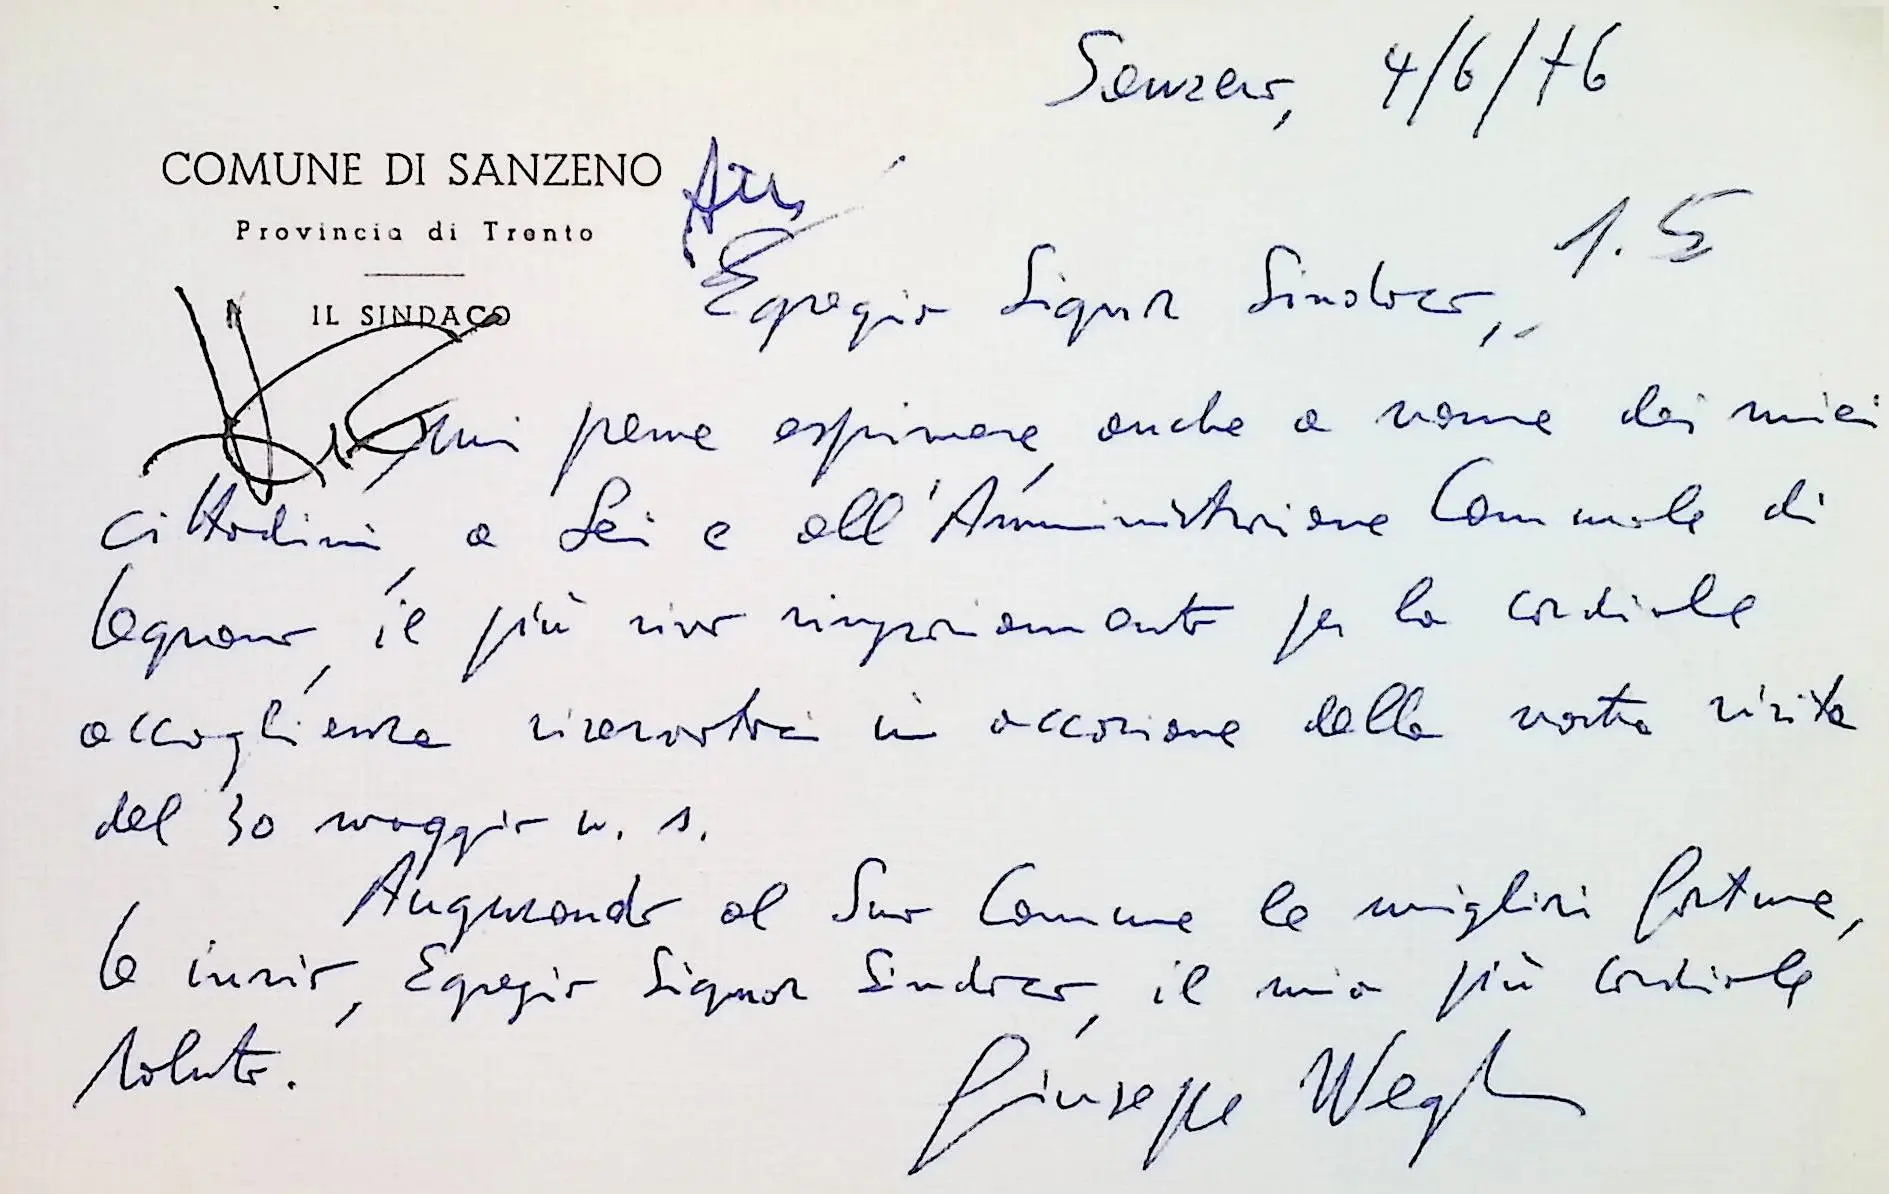 Sanzeno, 4/6/76
COMUNE DI SANZENO
Provincia di Trento
IL SINDACO
Atti
1.5
Egregio Signor Sindaco,
mi preme esprimere, anche a nome dei miei
cittadini, a Lei e all'Amministrazione Comunale di
Legnano, il più vivo ringraziamento per la cordiale
accoglienza riservataci in occasione della nostra visita
del 30 maggio u. s.
Augurando al Suo Comune le migliori fortune,
Le invio, Egregio Signor Sindaco, il mio più cordiale
saluto.
Giuseppe